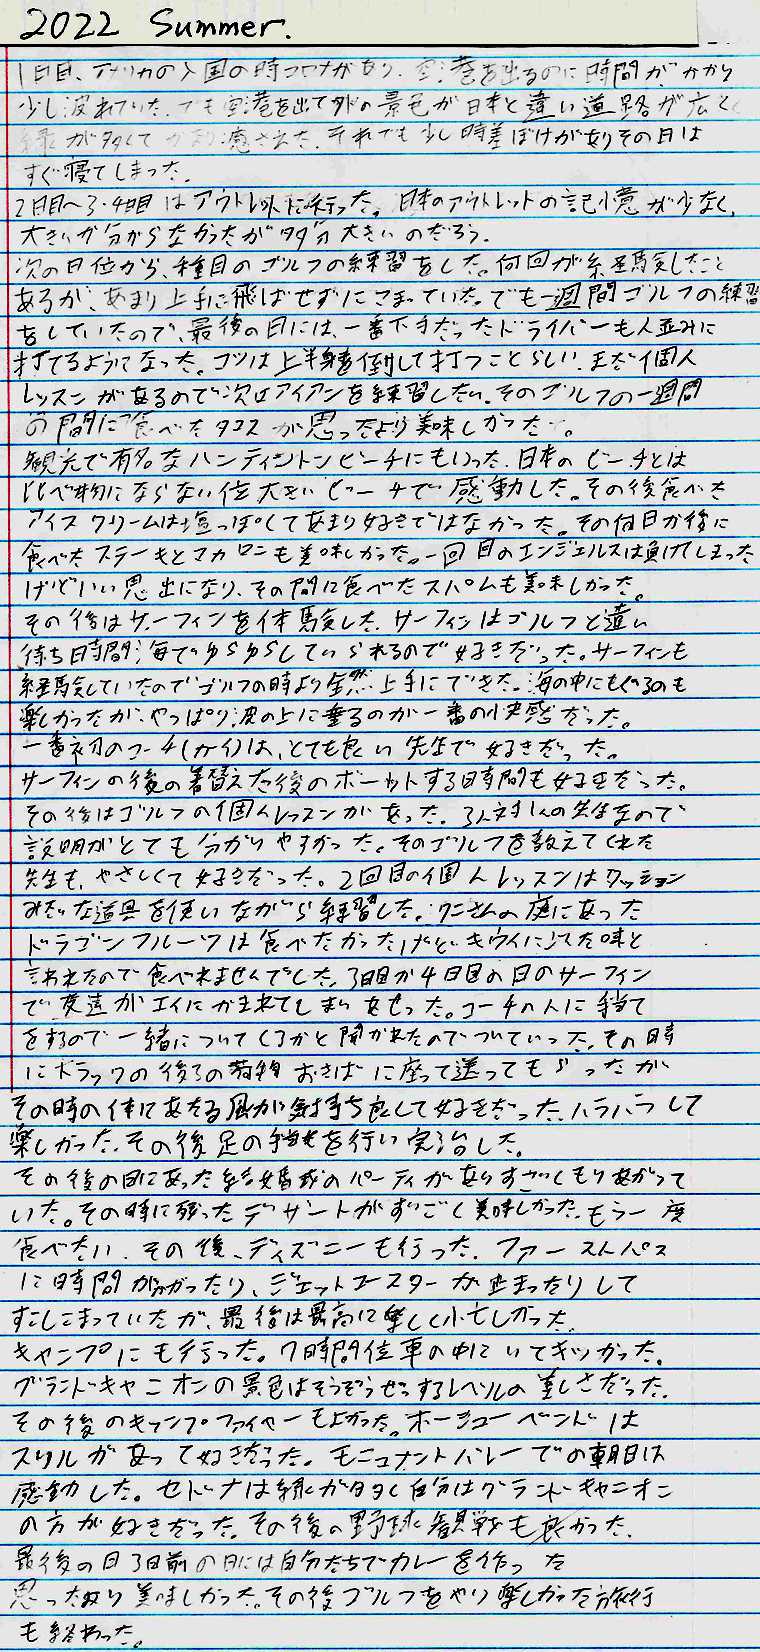 2022 Summer.
1日目、アメリカの入国の時コロナがあり、空港を出るのに時間がかかり
少し疲れていた。でも空港を出て外の景色が日本と違い道路が広く
緑が多くてかなり癒された。それでも少し時差ぼけがありその日は
すぐ寝てしまった。
2日目〜3・4日目はアウトレットに行った。日本のアウトレットの記憶が少なく、
大きいか分からなかったが多分大きいのだろう。
次の日位から、種目のゴルフの練習をした。何回か経験したこと
あるが、あまり上手に飛ばせずにこまっていた。でも一週間ゴルフの練習
をしていたので、最後の日には、一番下手だったドライバーも人並みに
打てるようになった。コツは上半身を倒して打つことらしい。まだ個人
レッスンがあるので次はアイアンを練習したい。そのゴルフの一週間
の間に食べたタコスが思ったより美味しかった。
観光で有名なハンティントンビーチにもいった。日本のビーチとは
比べ物にならない位大きいビーチで感動した。その後食べた
アイスクリームは塩っぽくてあまり好きではなかった。その何日か後に
食べたステーキとマカロニも美味しかった。一回目のエンジェルスは負けてしまった
けどいい思出になり、その間に食べたスパムも美味しかった。
その後はサーフィンを体験した。サーフィンはゴルフと違い
待ち時間海でゆらゆらしていられるので好きだった。サーフィンも
経験していたのでゴルフの時より全然上手にできた。海の中にもぐるのも
楽しかったが、やっぱり波の上に乗るのが一番の快感だった。
一番初のコーチ(カイ)は、とても良い先生で好きだった。
サーフィンの後の着替えた後のボーっとする時間も好きだった。
その後はゴルフの個人レッスンがあった。3人対1人の先生なので
説明がとても分かりやすかった。そのゴルフを教えてくれた
先生も、やさしくて好きだった。2回目の個人レッスンはクッション
みたいな道具を使いながら練習した。クニさんの庭にあった
ドラゴンフルーツは食べたかったけど、キウイににた味と
言われたので食べれませんでした。3日目か4日目の日のサーフィン
で友達がエイにかまれてしまいあせった。コーチの人に手当て
をするので一緒についてくるかと聞かれたのでついていった。その時
にトラックの後ろの荷物おきばに座って送ってもらったが
その時の体にあたる風が気持ち良くて好きだった。ハラハラして
楽しかった。その後足の手当を行い完治した。
その後の日にあった結婚式のパーティがありすごくもりあがって
いた。その時に残ったデザートがすごく美味しかった。もう一度
食べたい。その後、ディズニーも行った。ファーストパス
に時間がかかったり、ジェットコースターが止まったりして
すこしこまっていたが、最後は最高に楽しく忙しかった。
キャンプにも行った。7時間位車の中にいてキツかった。
グランドキャニオンの景色はそうぞうぜっするレベルの美しさだった。
その後のキャンプファイヤーもよかった。ホーシューベンドは
スリルがあって好きだった。モニュメントバレーでの朝日は
感動した。セドナは緑が多く自分はグランドキャニオン
の方が好きだった。その後の野球観戦も良かった。
最後の日3日前の日には自分たちでカレーを作った
思ったより美味しかった。その後ゴルフをやり楽しかった旅行
も終わった。